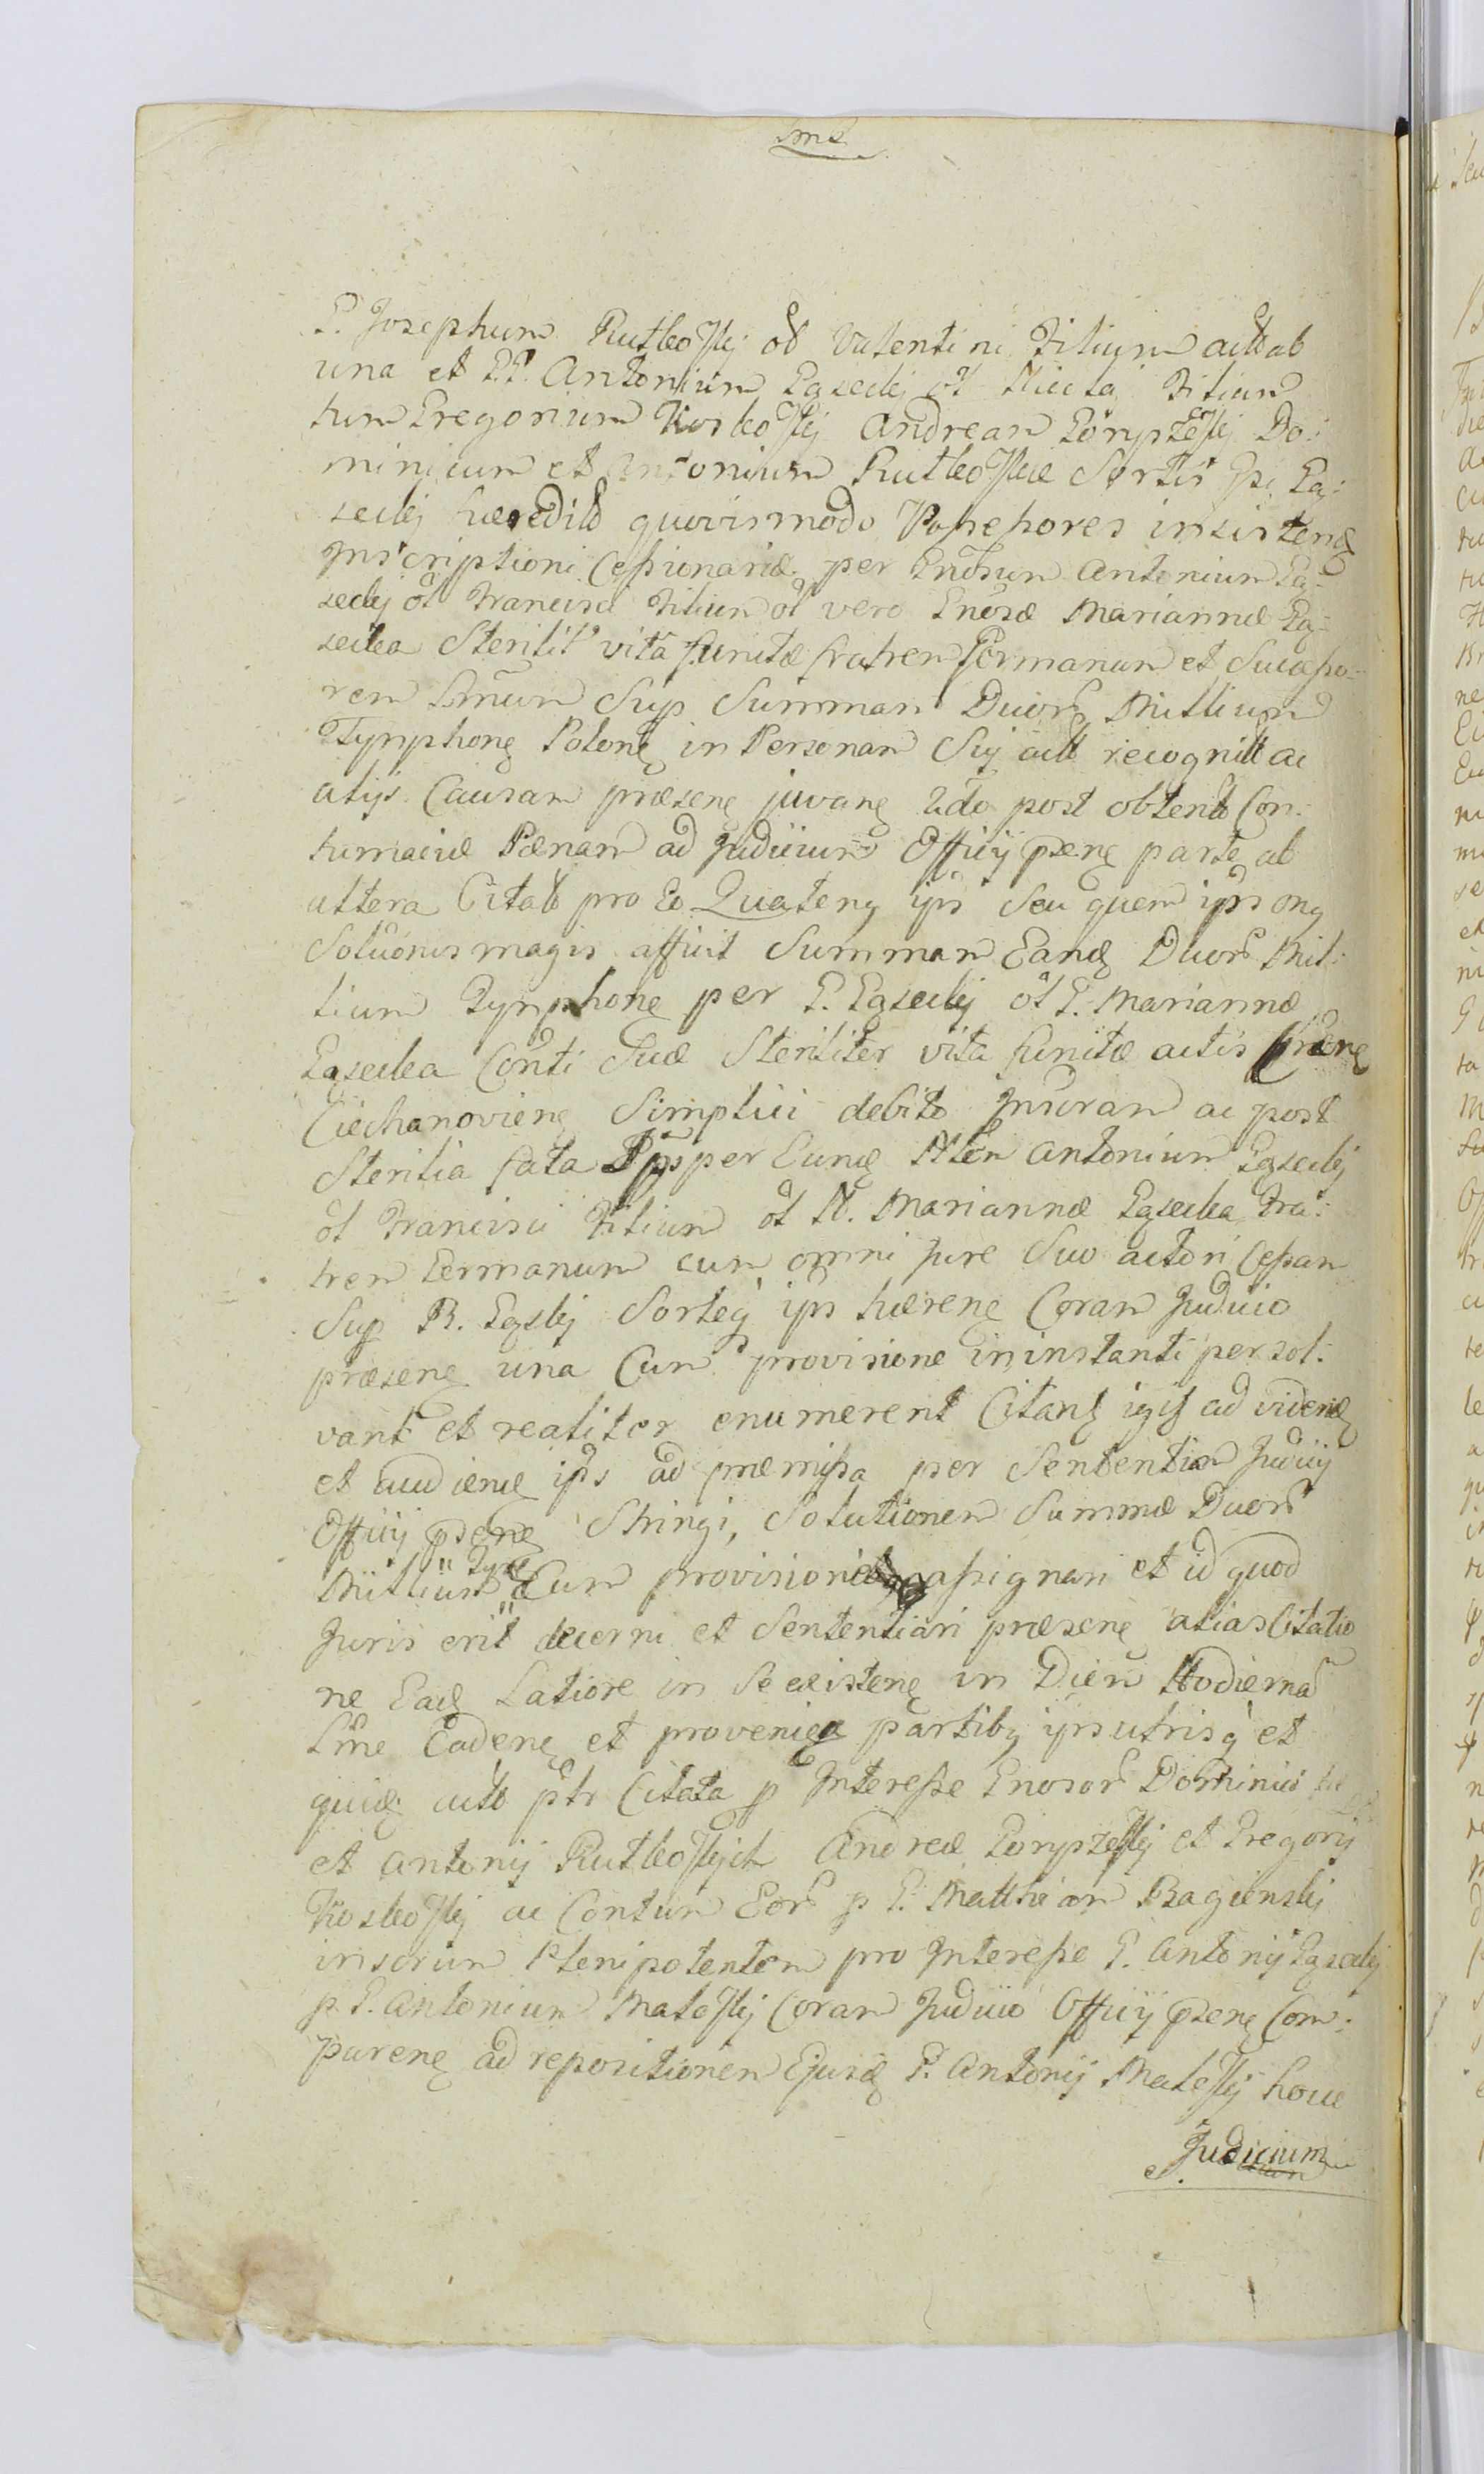 G. Josephum Rutkowskj ol. Valentini Filium actorem ab
una et G.G. Antonium Gąseckj ol. Nicolai Filium
tum Gregorium Koskowskj Andream Gorypzeskj Do:
minicum et Antonium Rutkowskie Sortis Gsi Gą:
seckj hæredit quovis modo Possessores insistend
Inscriptioni Cessionariæ per Gnosum Antonium Gą:
seckj ol. Francisci Filium ol vero Gnosæ Mariannæ Gą:
secka Sterilit vita functæ fratrem Germanum et Successo:
rem Lnum Sup Summam Duor Millium
Tynphonę Polonę in Personam Sui act recognitt ac
alijs Causam præsenę juvanę Ido post obtent Con:
tumaciæ Pænam ad Judicium Officij psenę partę ab
altera Citat pro Eo Quateną ips Seu quem ips oną
Soluonis magis afficit Summam Eand Duor Mil:
lium Tynphonę per G. Gąseckj ol G. Mariannæ
Gąsecka Conti Suæ Steriliter vita functæ actis
Ciechanovienę Simplici debito Inscram ac post
Sterilia fata Ips per Eund Nlem Antonium Gąseckj
ol Francisci Filium ol N. Mariannæ Gąsecka Fra:
trem Germanum cum omni jure Suo actori Cessam
Sup B. Gąskj Sorteq ips hærenę Coram Judicio
præsenę una Cum provisione in instanti persol:
vant et realiter enumerent Citand igit ad vidend
et audiend ips ad præmissa per Sententiam Judicij
Officij psenę Stringi, Solutionem Summæ Duor
Millium Tynf Cum provisione assignari et id quod
Juris erit decerni et Sententiari præsenę alias Citatio
ne Ead Latiore in Se existenę in Diem Hodierna
Lme Cadenę et provenien partibą ips utrisq et
quid acto ptr Citata p Interesse Gnosor Dominici
et Antonij Rutkowskich Andreæ Gorypzeskj et Gregorij
Koskowskj ac Contum Eor p G. Matthiam Bagienskj
inscrum Plenipotentem pro Interesse G. Antonij Gąseckj
p. G. Antonium Malowskj Coram Judicio Officij psenę Com:
parenę ad repositionem Ejusd G. Antonij Maleskj hocce
Judicium